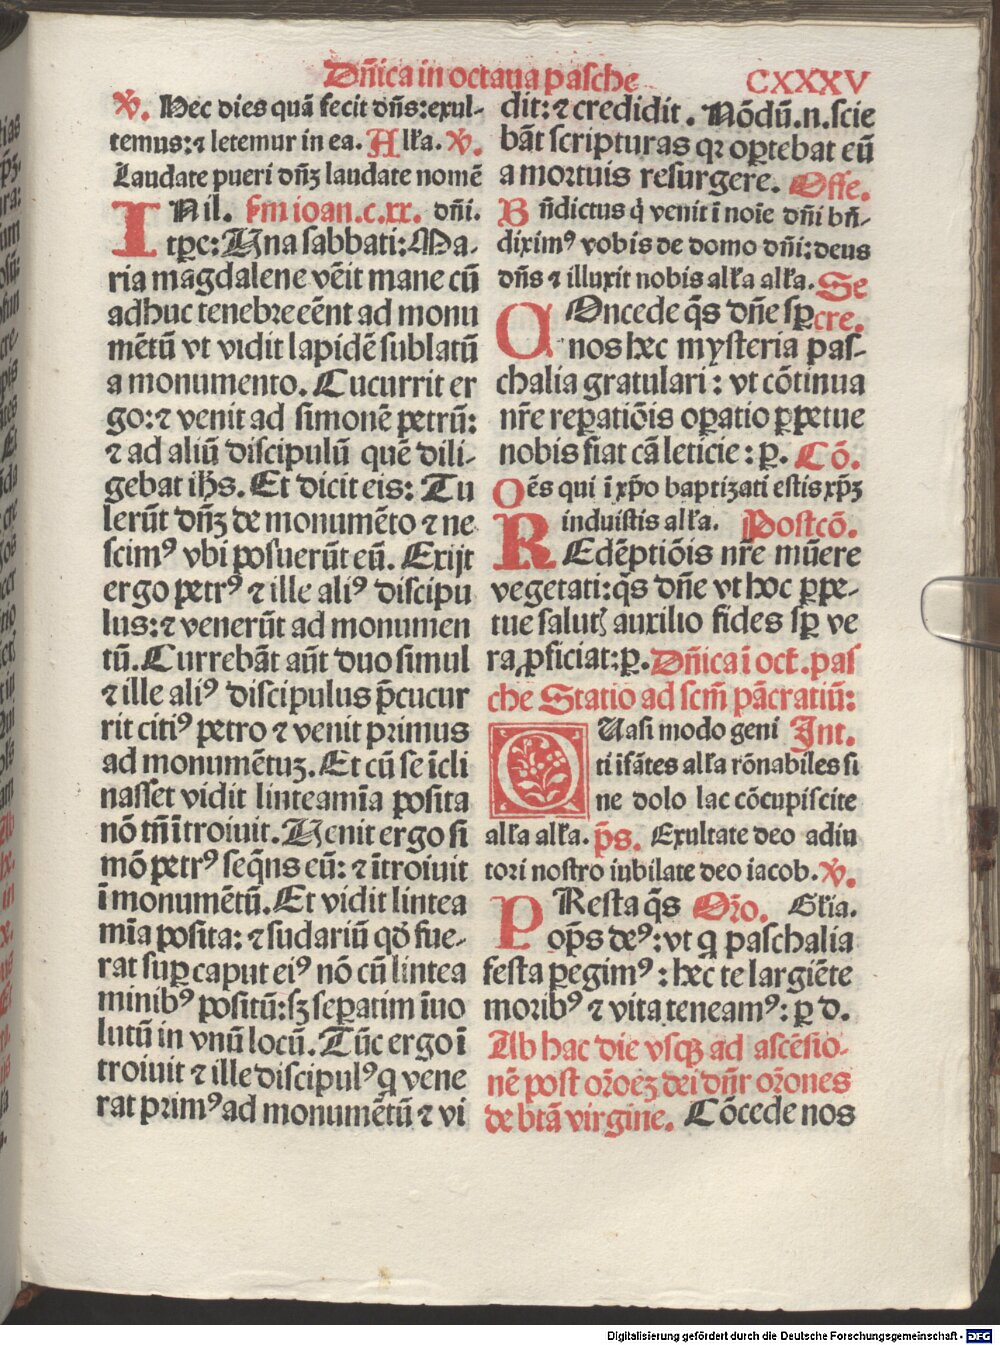 Dñica in octaua pasche
CXXXV
℣. Hec dies quā fecit dñs: exul-
temus: ⁊ letemur in ea. Alľa. ℣.
Laudate pueri dñꝫ laudate nomē
INil. ſm ioan. c. xx. dñi.
Itꝑe: Una sabbati: Ma-
ria magdalene vēit mane cū
adhuc tenebre eēnt ad monu
mētū vt vidit lapidē sublatū
a monumento. Cucurrit er
go: ⁊ venit ad simonē petrū:
⁊ ad aliū discipulū quē dili-
gebat ihs̄. Et dicit eis: Tu
lerūt dñꝫ de monumēto ⁊ ne
scimꝰ vbi posuerūt eū. Exijt
ergo petrꝰ ⁊ ille aliꝰ discipu
lus: ⁊ venerūt ad monumen
tū. Currebāt aūt duo simul
⁊ ille aliꝰ discipulus p̄cucur
rit citiꝰ petro ⁊ venit primus
ad monumētuꝫ. Et cū se īcli
nasset vidit linteamīa posita
nō tm̄ ītroiuit. Uenit ergo si
mō petrꝰ seq̄ns eū: ⁊ ītroiuit
ī monumētū. Et vidit lintea
mīa posita: ⁊ sudariū qd̄ fue-
rat suꝑ caput eiꝰ nō cū lintea
minibꝰ positū: sꝫ seꝑatim īuo
lutū in vnū locū. Tūc ergo ī
troiuit ⁊ ille discipulꝰ q̇ vene
rat primꝰ ad monumētū ⁊ vi
dit: ⁊ credidit. Nōdū .n. scie
bāt scripturas qꝛ oꝑtebat eū
a mortuis resurgere. Offe.
Bñdictus q̇ venit ī noīe dñi bñ-
diximꝰ vobis de domo dñi: deus
dñs ⁊ illuxit nobis alľa alľa. Se
COncede q̄s dñe sꝑ cre.
nos hec mysteria pas-
chalia gratulari: vt cōtinua
nr̄e reꝑatiōis oꝑatio ꝑpetue
nobis fiat cā leticie: ꝑ. Cō.
Oēs qui ī xp̄o baptizati estis xp̄ꝫ
induistis alľa. Postcō.
REdēptiōis nr̄e mūere
vegetati: q̄s dñe vt hoc ꝑpe-
tue salutꝭ auxilio fides sꝑ ve
ra ꝓficiat: ꝑ. Dñica ī oct. pas
che Statio ad scm̄ pācratiū:
QUasi modo geni Int.
ti īfātes alľa rōnabiles si
ne dolo lac cōcupiscite
alľa alľa. p̄s. Exultate deo adiu
tori nostro iubilate deo iacob. ℣.
PResta q̄s Oro. Gľia.
op̄s deꝰ: vt q̇ paschalia
festa ꝑegimꝰ: hec te largiēte
moribꝰ ⁊ vita teneamꝰ: ꝑ d.
Ab hac die vsqꝫ ad ascēsio-
nē post or̄oeꝫ dei dn̄r or̄ones
de bt̄a virgīne. Cōcede nos
Digitalisierung gefördert durch die Deutsche Forschungsgemeinschaft - DFG